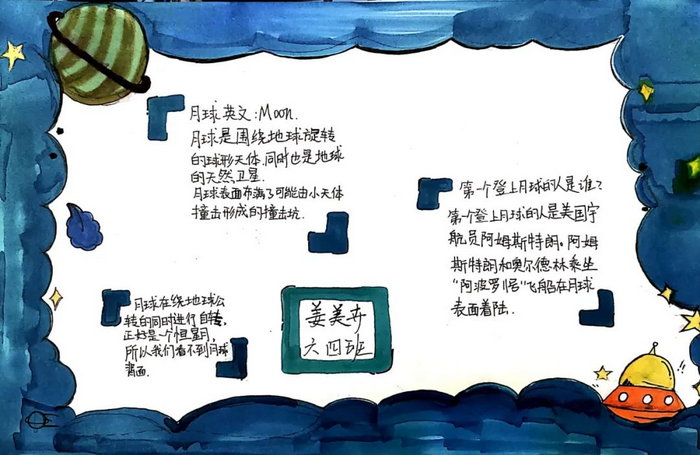 月球英文:Moon.
月球是围绕地球旋转
的球形天体,同时也是地球
的天然卫星.
月球表面布满了可能由小天体
撞击形成的撞击坑.
第一个登上月球的人是谁?
第一个登上月球的人是美国宇
航员阿姆斯特朗。阿姆
斯特朗和奥尔德林乘坐
"阿波罗1号"飞船在月球
表面着陆.
月球在绕地球公
转的同时进行自转,
正好是一个恒星月,
所以我们看不到月球
背面.
姜美卉
六四班